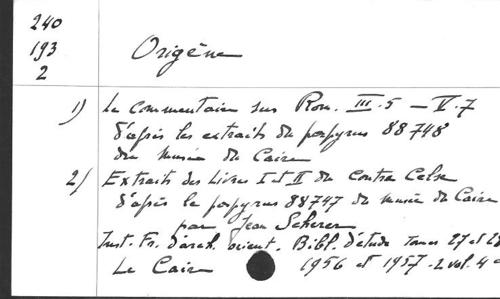 240
193
2
Origène
1) Le commentaire sur Rom. III.5 – V.7
d'après les extraits du papyrus 88748
du musée du Caire
2) Extraits des Livres I et II du Contre Celse
d'après le papyrus 88747 du musée du Caire
par Jean Scherer
Inst. Fr. d'arch. orient. Bibl. d'étude tomes 27 et 28
Le Caire 1956 et 1957 - 2 vol. 4°